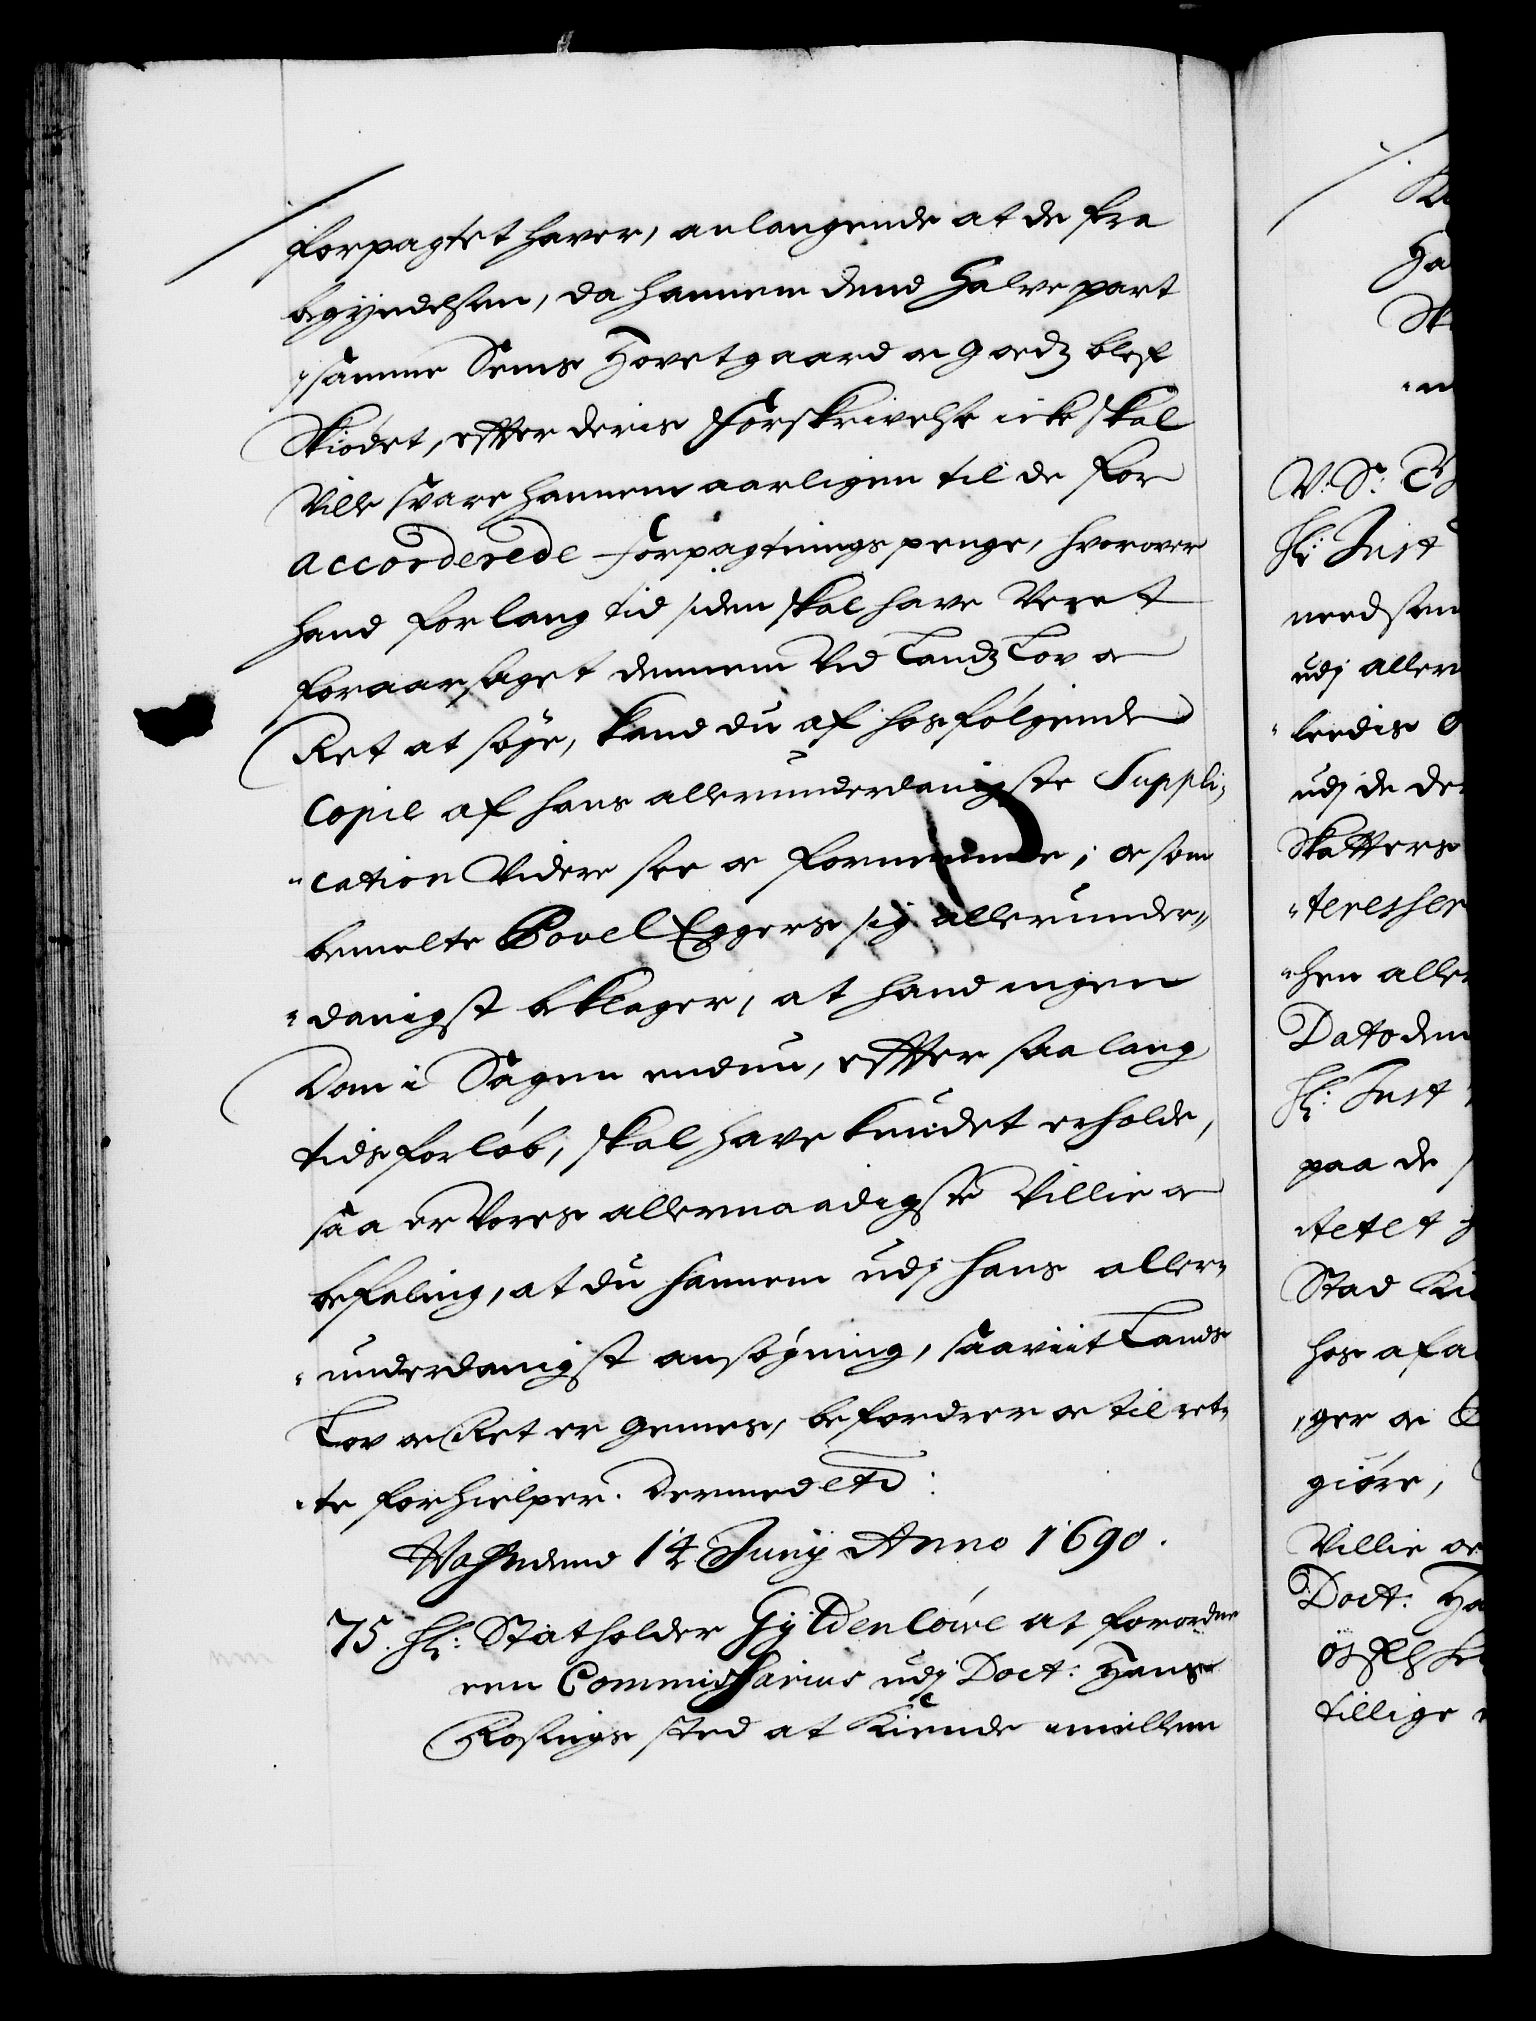 forpagtet haver, anlangende at de fra
begyndelsen, da hannem dend Halve part
j samme Sems Hovetgaard oc goedz blef
Skiødet, effter deris Forskrivelse icke skal
Ville svare hannem aarligen til de for
accorderede forpagtnings penge, hvorover
hand for lang tid siden skal have Veret
foraarsaget dennem Ved Landz Lov oc
Ret at søge, kand du af hosfølgende
Copie af hans allerunderdanigste Suppli,
"cation Videre see oc fornemme; oc som
bemelte Povel Eggers sig allerunder"
"danigst beklager, at hand ingen
Dom i Sagen endnu, effter saa lang
tids forløb, skal have kundet erholde,
saa er Vores allernaadigste Villie oc
befaling, at du hannem udj hans aller"
"underdanigst ansøgning, saaviit Lands
Lov oc Ret er gemes, befordrer oc til ret"
"te forhielper. Dermed etc:
Hafn dend 14 Junij Anno 1690.
75. Hr: Statholder Gyldenløwe at forordne
een Commissarius udj Doct: Hans
Rosings sted at Kiende imellem
V. S: T
Hr: Just
needsen
udj allern
"ledis O
udj de de
Skatters
"teresser
"hen aller
Dato den
Hr: Just
paa de
"tetet
Stad
hos afa
"ger oc
giøre,
Villie oc
Doct: Ha
tillige